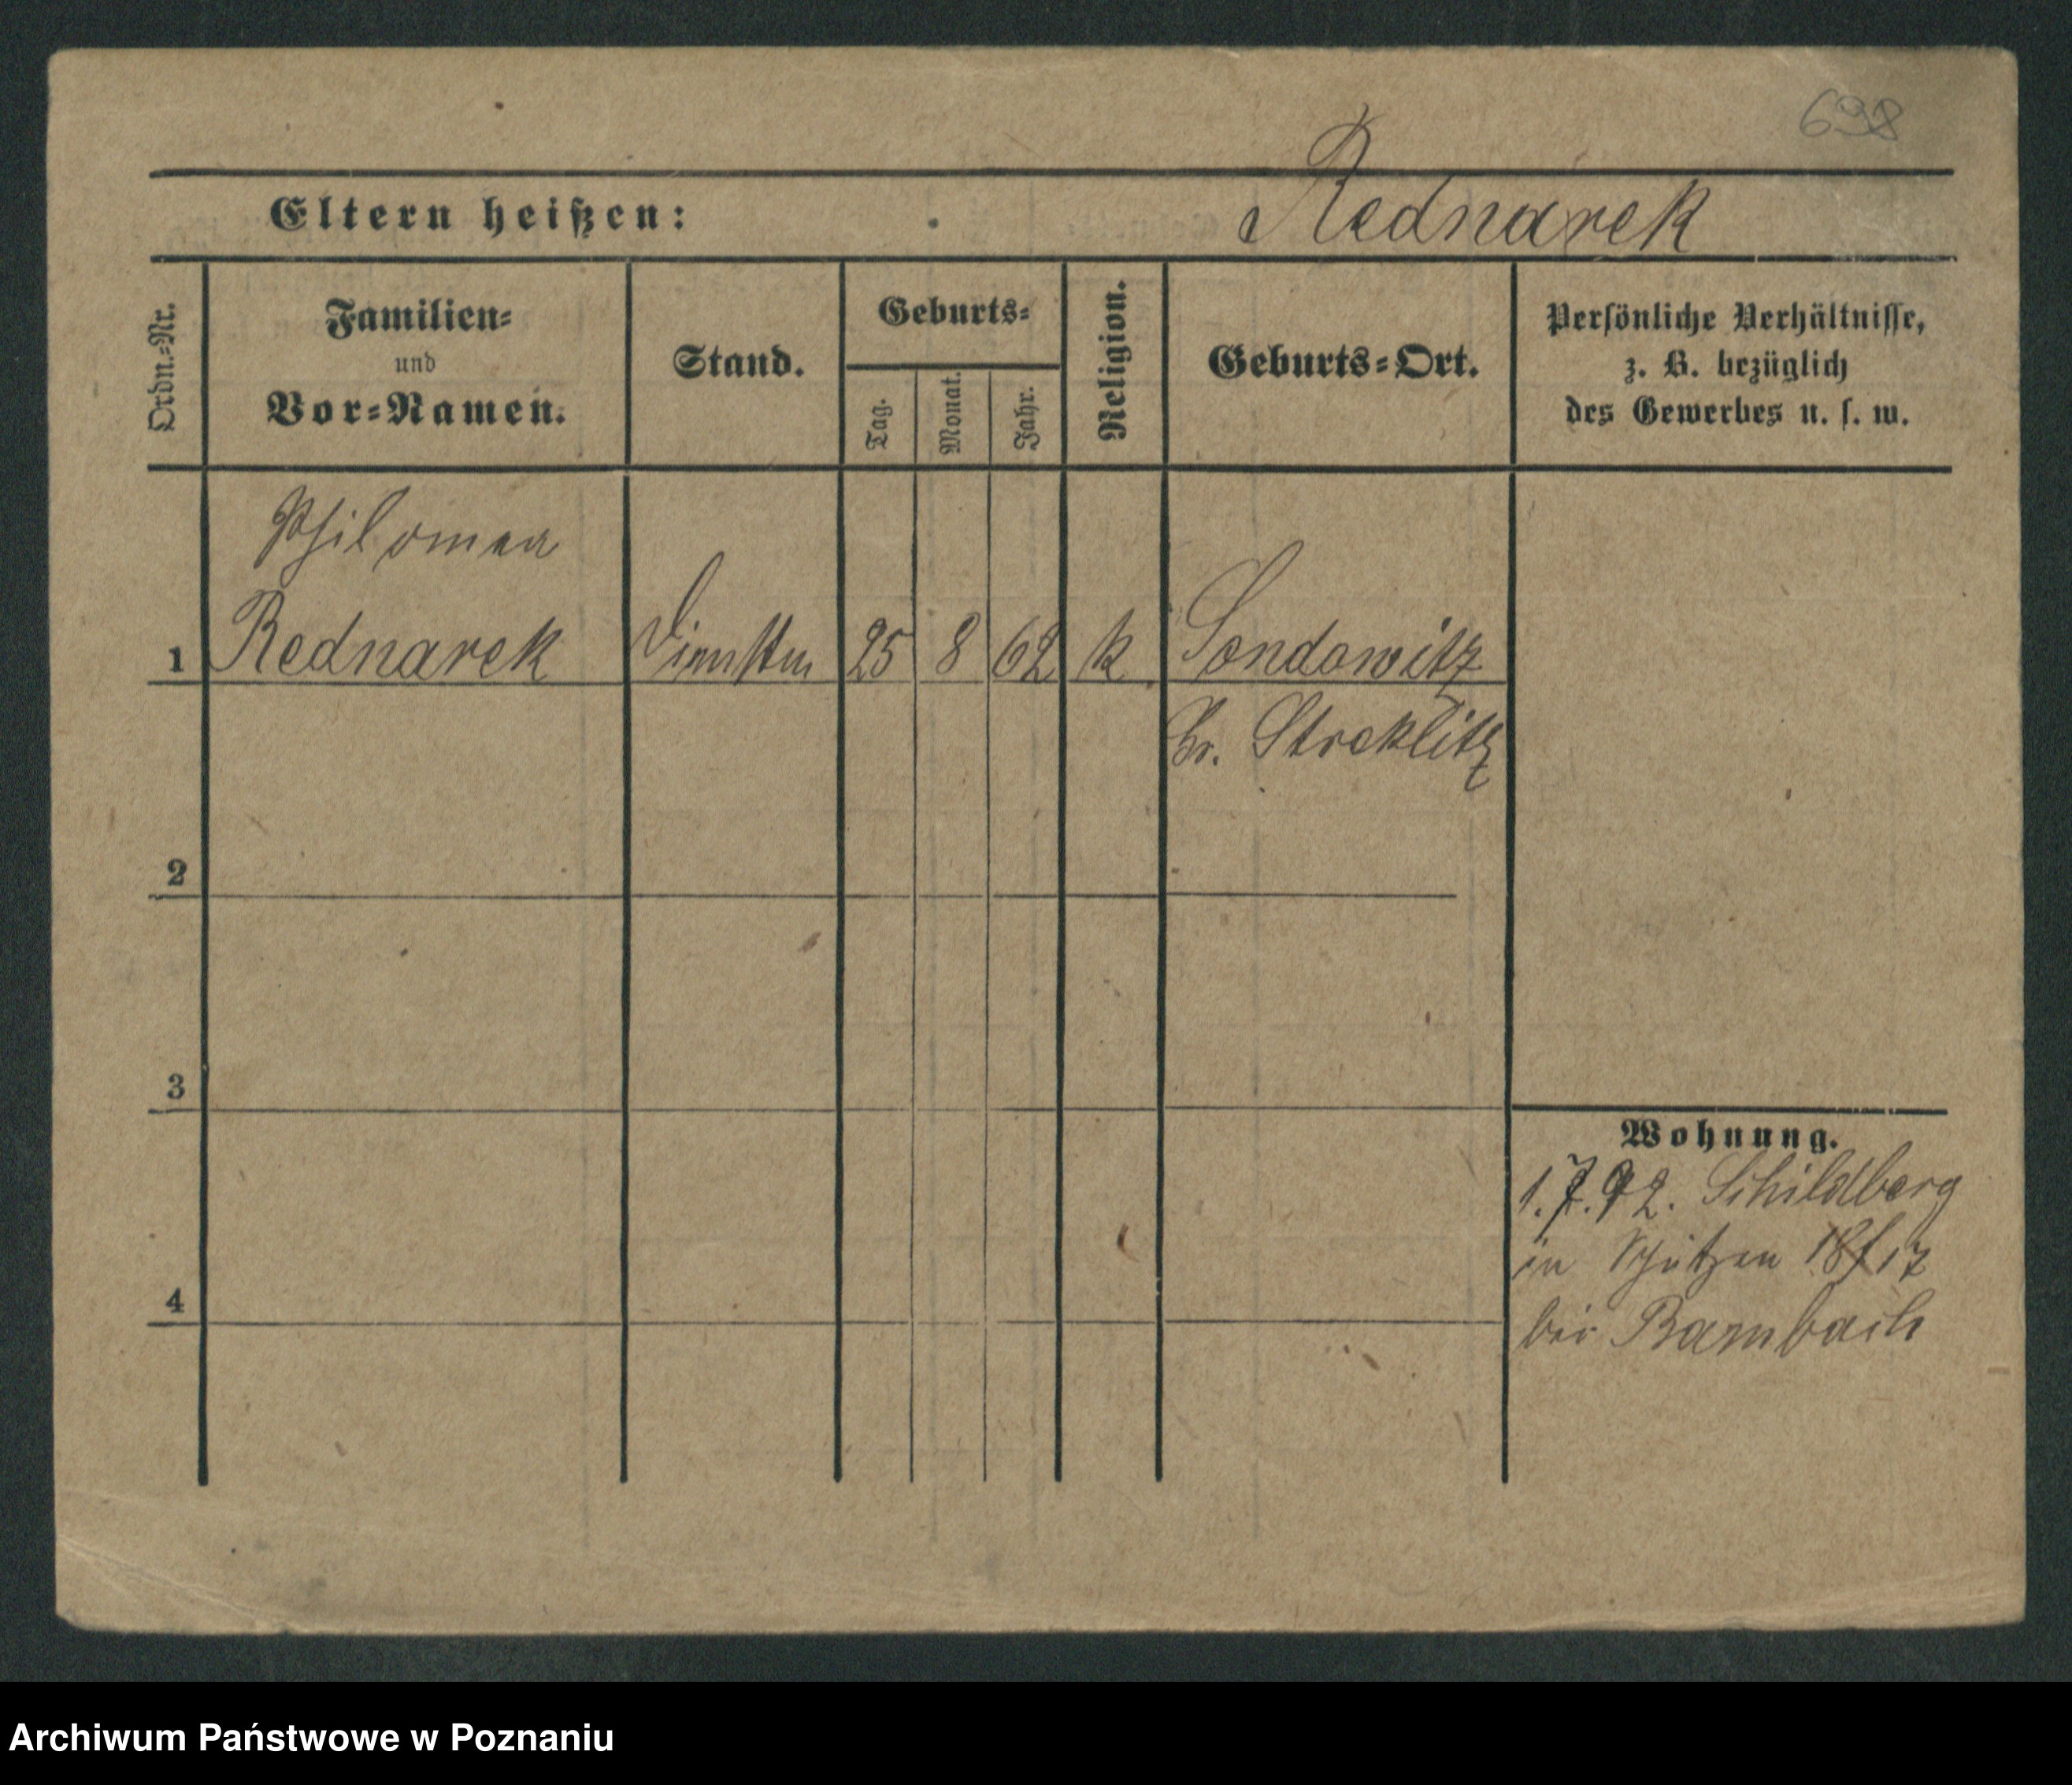 698
Eltern heißen: Rednarek
Ordn.-Nr.
Familien-
und
Vor-Namen.
Stand.
Geburts-
Tag.
Monat.
Jahr.
Religion.
Geburts-Ort.
Persönliche Verhältnisse,
z. B. bezüglich
des Gewerbes u. s. w.
Philomea
1 Rednarek 25 8 62 k Sandowitz
Gr. Streklitz
2
3
Wohnung.
1.7.92. Schildberg
in Schützen 18/17
4
bei Bambach
Archiwum Państwowe w Poznaniu